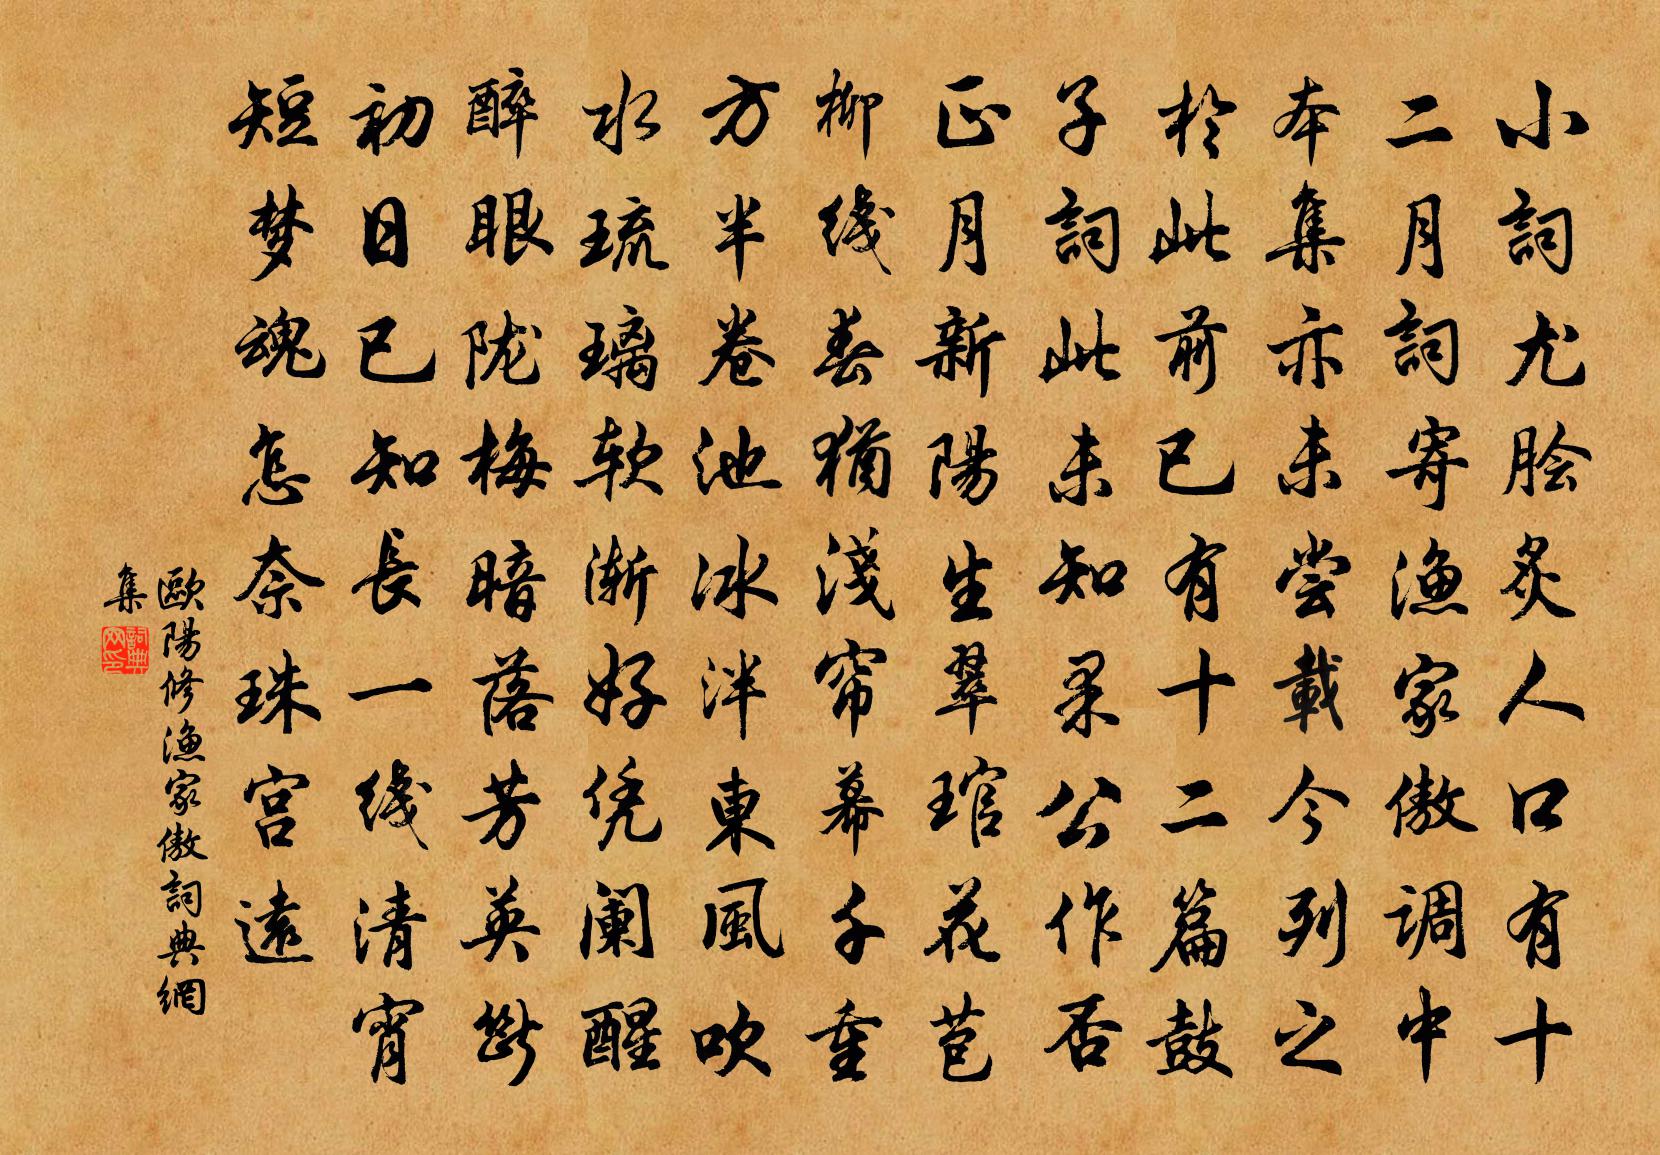 小詞尤脍炙人口有十
二月詞寄漁家傲調中
本集亦未尝載今列之
於此前已有十二篇鼓
子詞此未知果公作否
正月新陽生翠琯花苞
柳綫春猶淺帘幕千重
方半卷池冰泮東風吹
水琉璃软渐好凭阑醒
醉眼陇梅暗落芳英斷
初日已知長一綫清宵
短梦魂怎奈珠宫遠
歐陽修漁家傲詞典網
集
詞典网印